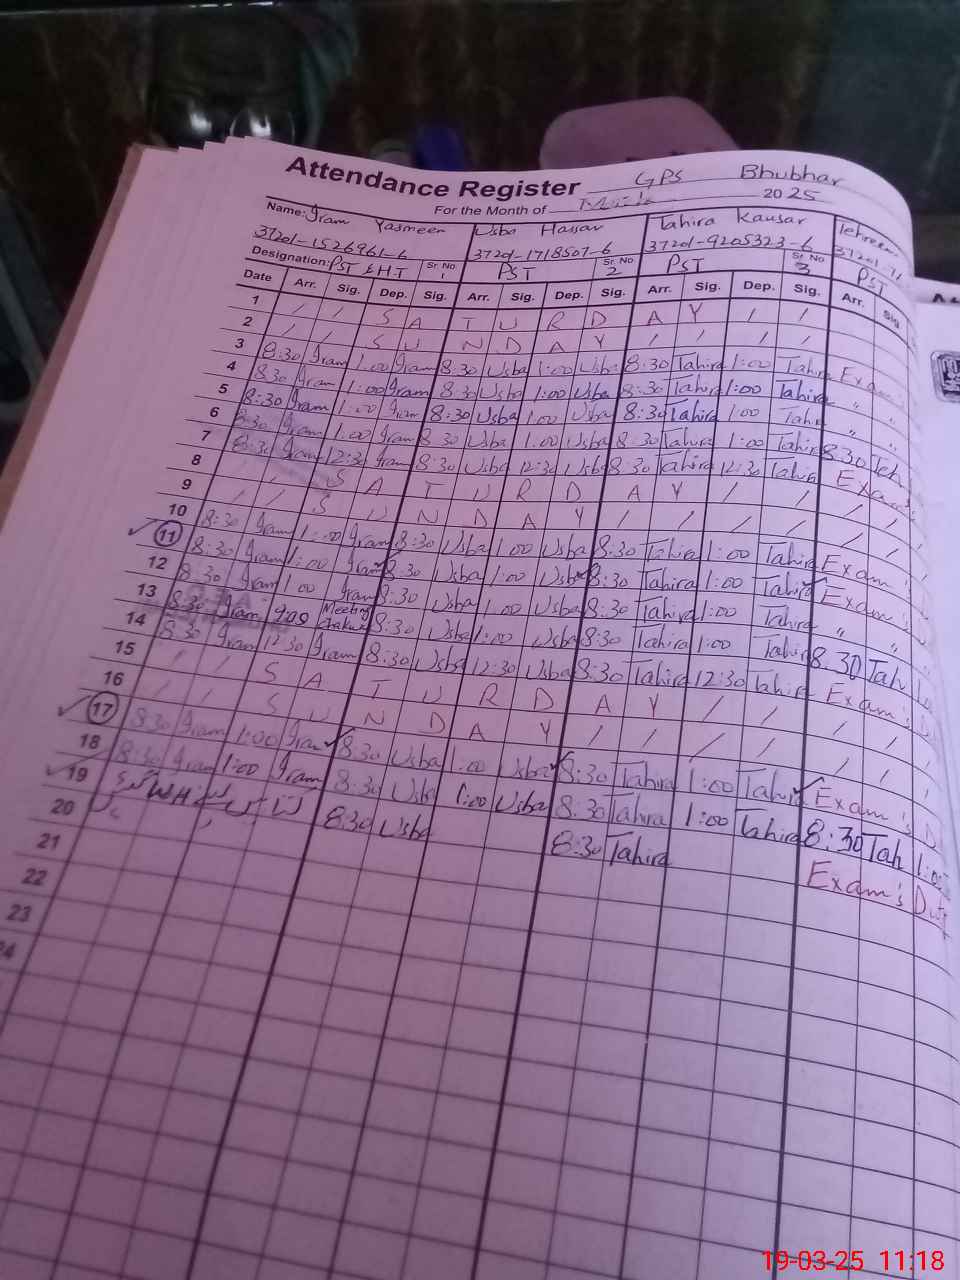 Attendance Register GPS Bhubhar
For the Month of March 2025
Name: Iram Yasmeen Usba Hassan Tahira Kausar Tehreem
37201-1526961-6 37201-1718507-6 37201-9205323-6 37201-71
Designation: PST & HT Sr. No 1 PST Sr. No 2 PST Sr. No 3 PST
Date Arr. Sig. Dep. Sig. Arr. Sig. Dep. Sig. Arr. Sig. Dep. Sig. Arr. Sig.
1 / / S A T U R D A Y / /
2 / / S U N D A Y / / / /
3 8:30 Iram 1:00 Iram 8:30 Usba 1:00 Usba 8:30 Tahira 1:00 Tahira Exam's
4 8:30 Iram 1:00 Iram 8:30 Usba 1:00 Usba 8:30 Tahira 1:00 Tahira " "
5 8:30 Iram 1:00 Iram 8:30 Usba 1:00 Usba 8:30 Tahira 1:00 Tahira " "
6 8:30 Iram 1:00 Iram 8:30 Usba 1:00 Usba 8:30 Tahira 1:00 Tahira 8:30 Teh
7 8:30 Iram 12:30 Iram 8:30 Usba 12:30 Usba 8:30 Tahira 12:30 Tahira Exam's
8 / / S A T U R D A Y / / / /
9 / / S U N D A Y / / / / / /
10 8:30 Iram 1:00 Iram 8:30 Usba 1:00 Usba 8:30 Tahira 1:00 Tahira Exam's
11 8:30 Iram 1:00 Iram 8:30 Usba 1:00 Usba 8:30 Tahira 1:00 Tahira Exam's D
12 8:30 Iram 1:00 Iram 8:30 Usba 1:00 Usba 8:30 Tahira 1:00 Tahira " "
13 8:30 Iram 9:00 Meeting Chakwal 8:30 Usba 1:00 Usba 8:30 Tahira 1:00 Tahira 8:30 Tah
14 8:30 Iram 12:30 Iram 8:30 Usba 12:30 Usba 8:30 Tahira 12:30 Tahira Exam's D
15 / / S A T U R D A Y / / / /
16 / / S U N D A Y / / / / / /
17 8:30 Iram 1:00 Iram 8:30 Usba 1:00 Usba 8:30 Tahira 1:00 Tahira Exam's D
18 8:30 Iram 1:00 Iram 8:30 Usba 1:00 Usba 8:30 Tahira 1:00 Tahira 8:30 Tah 1:00
19 8:30 Usba 8:30 Tahira Exam's Dut
20
21
22
23
24
19-03-25 11:18